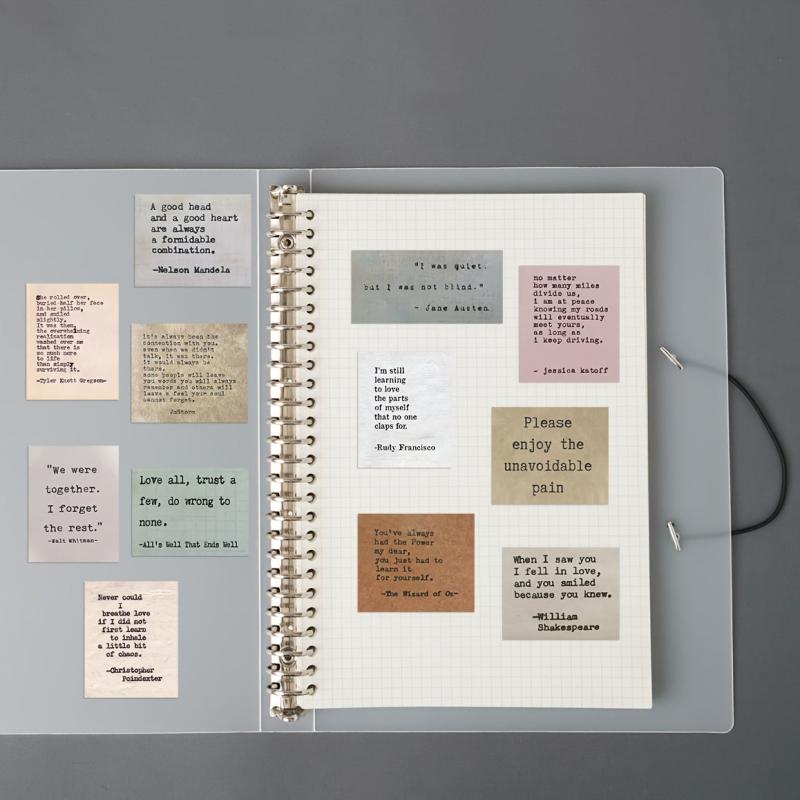 A good head
and a good heart
are always
a formidable
combination.
—Nelson Mandela
She rolled over,
buried half her face
in her pillow,
and smiled
slightly,
It was then,
the overwhelming
realization
washed over me
that there is
so much more
to life
than simply
surviving it.
—Tyler Knott Gregson—
it's always been the
connection with you.
even when we didn't
talk, it was there.
it would always be
there.
some people will leave
you words you will always
remember and others will
leave a feel your soul
cannot forget.
JmStorm
"We were
together.
I forget
the rest."
—Walt Whitman—
Love all, trust a
few, do wrong to
none.
—All's Well That Ends Well
Never could
I
breathe love
if I did not
first learn
to inhale
a little bit
of chaos.
—Christopher
Poindexter
"I was quiet.
but I was not blind."
— Jane Austen
no matter
how many miles
divide us,
i am at peace
knowing my roads
will eventually
meet yours,
as long as
i keep driving.
— jessica katoff
I'm still
learning
to love
the parts
of myself
that no one
claps for.
-Rudy Francisco
Please
enjoy the
unavoidable
pain
You've always
had the Power
my dear,
you just had to
learn it
for yourself.
—The Wizard of Oz—
When I saw you
I fell in love,
and you smiled
because you knew.
—William
Shakespeare